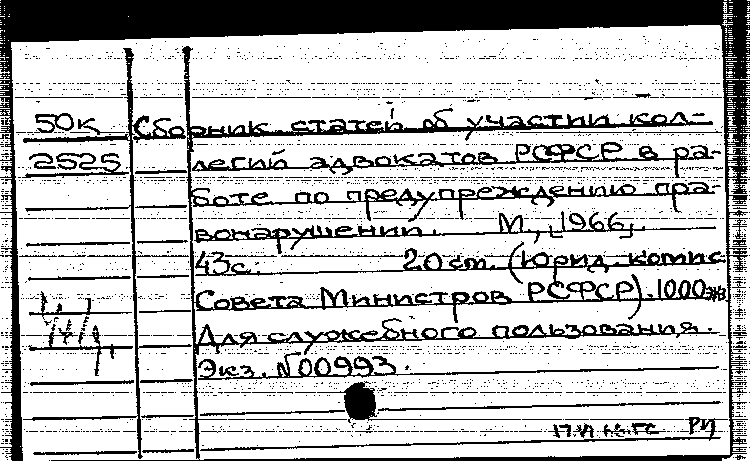 50к Сборник статей об участии кол-
2525 легий адвокатов РСФСР в ра-
боте по предупреждению пра-
вонарушений. М., [1966].
43с. 20 см. (Юрид. комис
Совета Министров РСФСР). 1000 экз
Для служебного пользования.
Экз. №00993.